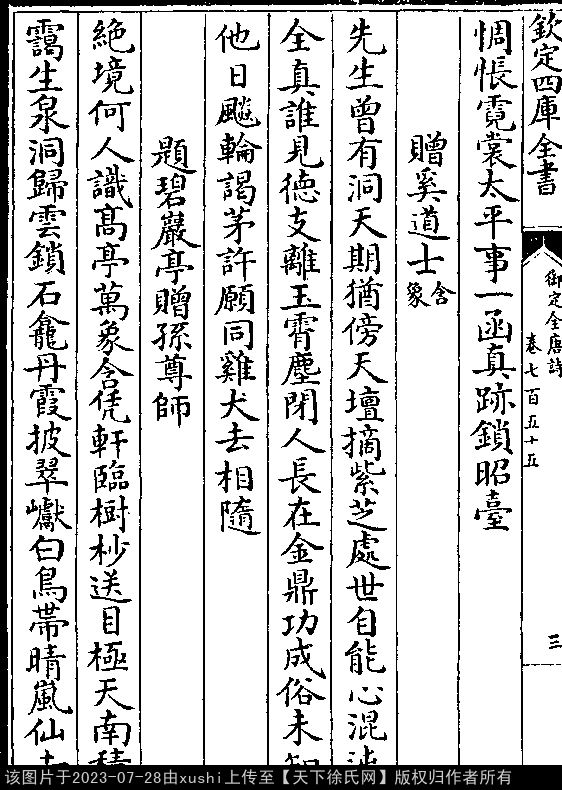 欽定四庫全書
御定全唐詩
卷七百五十五
三
惆悵霓裳太平事一函真跡鎖昭臺
贈奚道士含象
先生曾有洞天期猶傍天壇摘紫芝處世自能心混
全真誰見德支離玉霄塵閉人長在金鼎功成俗未
他日飈輪謁茅許願同雞犬去相隨
題碧巖亭贈孫尊師
絕境何人識高亭萬象含凭軒臨樹杪送目極天南積
靄生泉洞歸雲鎖石龕丹霞披翠巘白鳥帶晴嵐仙
该图片于2023-07-28由xushi上传至【天下徐氏网】版权归作者所有